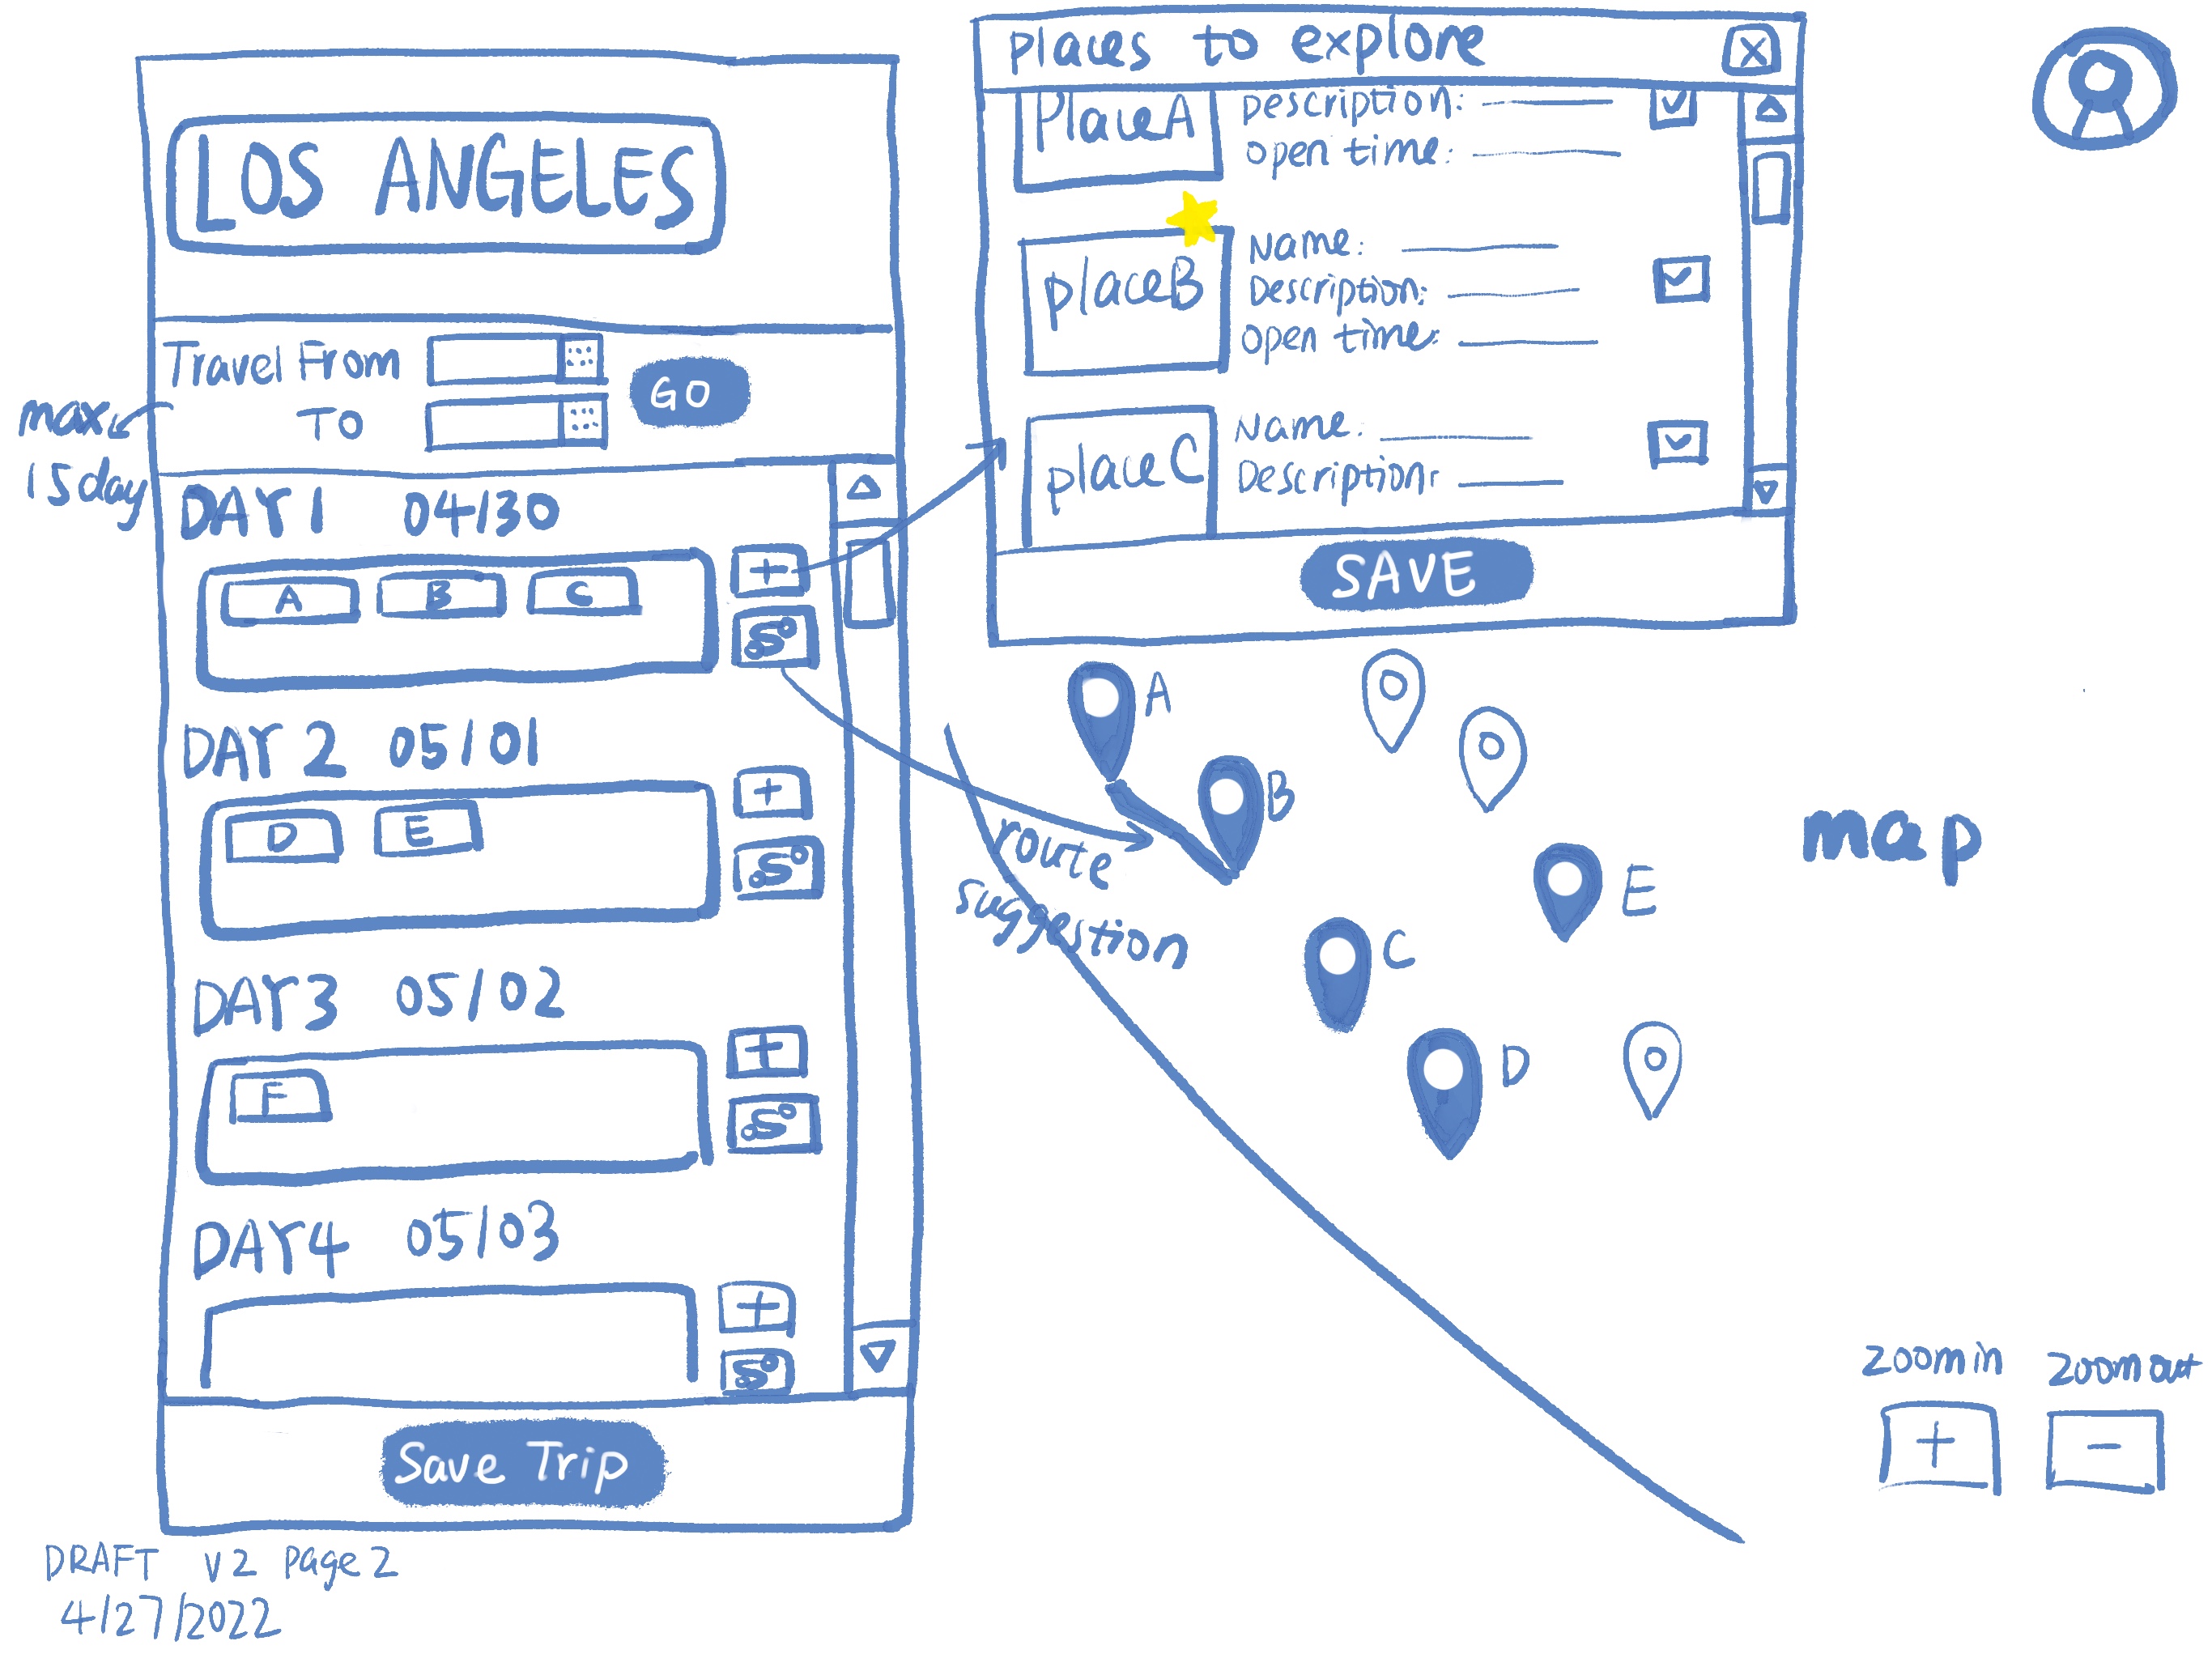 LOS ANGELES
Travel From
TO
GO
max
15day
DAY 1 04/30
A B C
+
DAY 2 05/01
D E
+
DAY3 05/02
F
+
DAY4 05/03
+
Save Trip
DRAFT V2 page 2
4/27/2022
places to explore
X
PlaceA
Description:
open time:
placeB
Name:
Description:
open time:
placeC
Name:
Description:
SAVE
A
B
route
suggestion
C
D
E
map
zoom in
+
zoom out
-